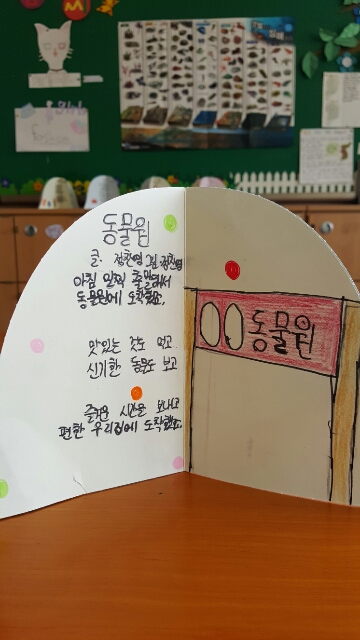 동물원
글. 정찬영 그림. 정찬영
아침 일찍 출발해서
동물원에 도착했죠.
맛있는 것도 먹고
신기한 동물도 보고
즐거운 시간을 보내고
편한 우리집에 도착했죠.
00동물원